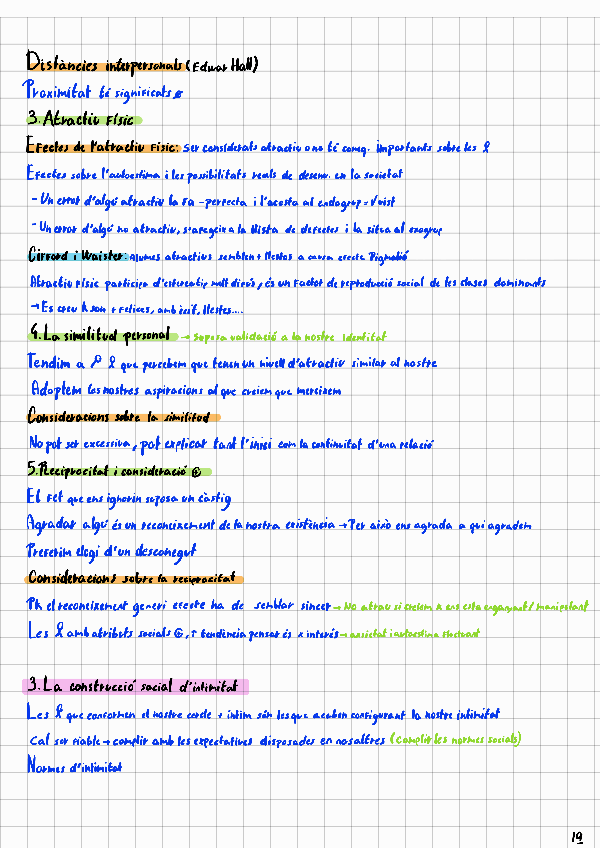 Distàncies interpersonals (Edwar Hall)
Proximitat té significats
3. Atractiu Físic
Efectes de l'atractiu Físic: Ser considerats atractiu o no té conq. importants sobre les
Efectes sobre l'autoestima i les possibilitats reals de desenv. en la societat
- Un error d'algú atractiu la fa - perfecta i l'acosta al endogrup = Vist
- Un error d'algú no atractiu, s'afegeix a la llista de defectes i la situa al exogrup
Cifford i Walster: Alumes atractius semblen + llestos a causa efecte Pigmalió
Atractiu Físic participa d'estereotip molt divós, és un factor de reproducció social de les clases dominants
→ Es creu són + felices, amb èxit, llestes....
4. La similitud personal → Suposa validació a la nostre identitat
Tendim a que percebem que tenen un nivell d'atractiu similar al nostre
Adoptem les nostres aspiracions al que creiem que mereixem
Consideracions sobre la similitud
No pot ser excessiva, pot explicar tant l'inici com la continuitat d'una relació
5. Reciprocitat i consideració ⊕
El fet que ens ignorin suposa un càstig
Agradar algú és un reconeixement de la nostra existència → Per això ens agrada a qui agradem
Preferim elogi d'un desconegut
Consideracions sobre la reciprocitat
Ph el reconeixement generi efecte ha de semblar sincer → No atrau si creiem x ens esta enganyant / manipulant
Les amb atributs socials ⊕, ↑ tendència pensar és x interés → ansietat i autoestima fluctuant
3. La construcció social d'intimitat
Les que conformen el nostre cercle + íntim són les que acaben configurant la nostre intimitat
Cal ser fiable → complir amb les expectatives disposades en nosaltres (Complir les normes socials)
Normes d'intimitat
19